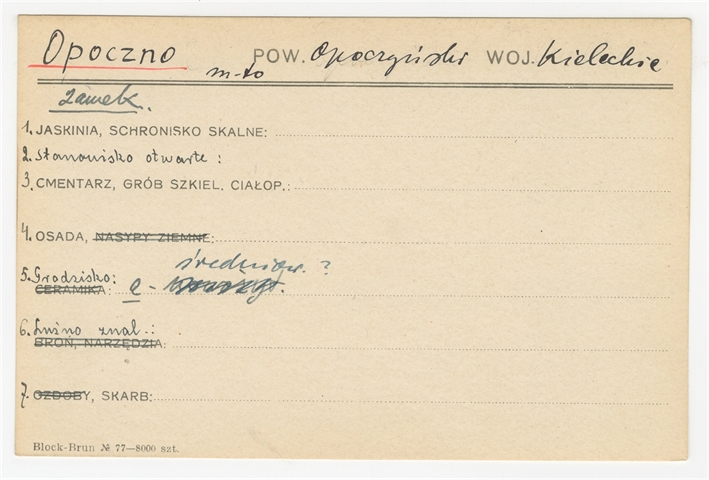 Opoczno POW. Opoczyński WOJ. Kieleckie
m-to
zamek.
1. JASKINIA, SCHRONISKO SKALNE:
2. Stanowisko otwarte:
3. CMENTARZ, GRÓB SZKIEL. CIAŁOP.:
4. OSADA, NASYPY ZIEMNE:
średniow. ?
5. Grodzisko:
CERAMIKA: e -
6. Luźno znal.:
BROŃ, NARZĘDZIA:
7. OZDOBY, SKARB:
Block-Brun № 77—8000 szt.